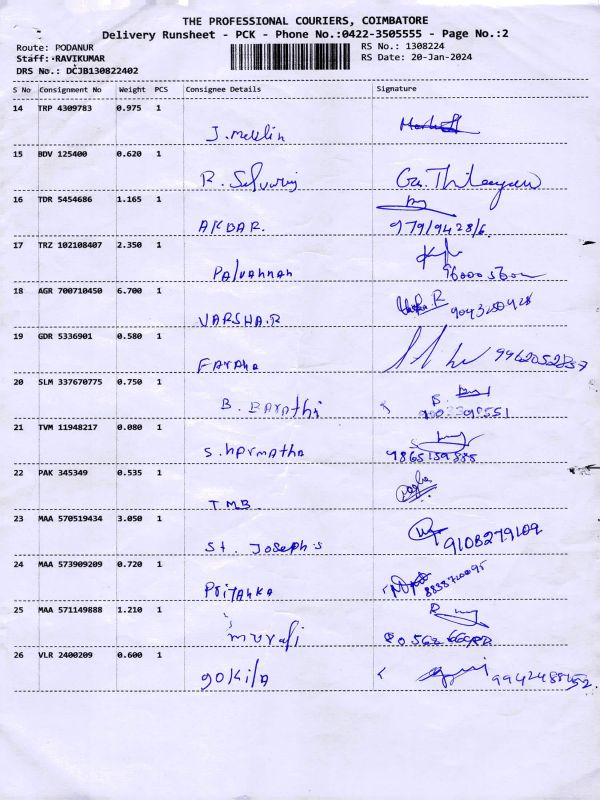 THE PROFESSIONAL COURIERS, COIMBATORE
Delivery Runsheet - PCK - Phone No.:0422-3505555 - Page No.:2
Route: PODANUR RS No.: 1308224
Staff: RAVIKUMAR RS Date: 20-Jan-2024
DRS No.: DCJB130822402
S No Consignment No Weight PCS Consignee Details Signature
14 TRP 4309783 0.975 1
J. Merlin
15 BDV 125400 0.620 1
R. Selvaraj
16 TDR 5454686 1.165 1
AKBAR.
17 TRZ 102108407 2.350 1
Palvannan
18 AGR 700710450 6.700 1
VARSHA.R
19 GDR 5336901 0.580 1
Farana 9962052857
20 SLM 337670775 0.750 1
B. Barathi
21 TVM 11948217 0.080 1
S. harmatha
22 PAK 345349 0.535 1
TMB
23 MAA 570519434 3.050 1
St. Joseph's 9108279109
24 MAA 573909209 0.720 1
Priyanka 8838720095
25 MAA 571149888 1.210 1
murali
26 VLR 2400209 0.600 1
gokila